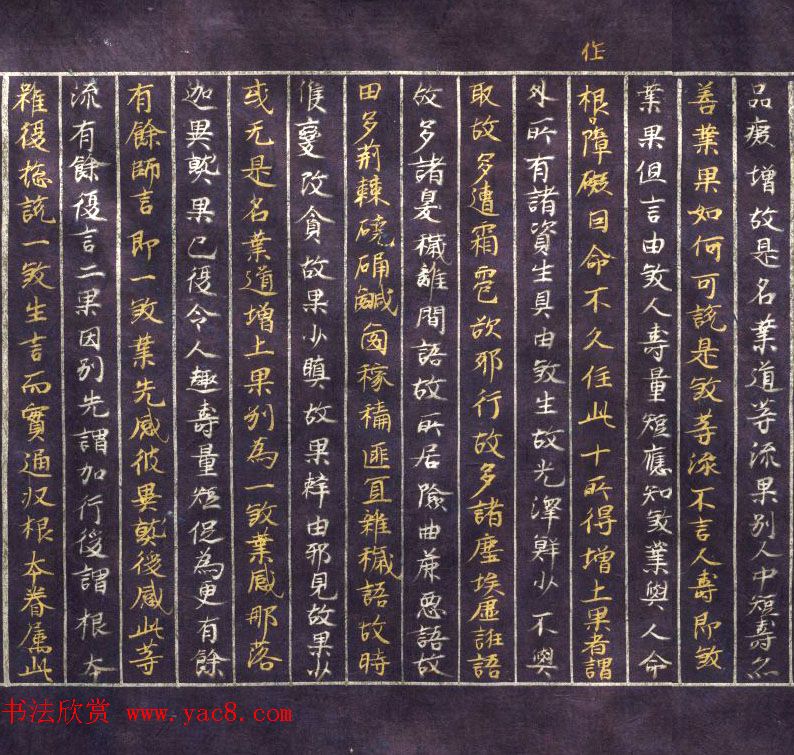 品癡增故是名業道等流果別人中短壽亦
善業果如何可說是殺等流不言人壽即殺
業果但言由殺人壽量短應知殺業與人命
作
根障礙因命不久住此十所得增上果者謂
外所有諸資生具由殺生故光澤鮮少不與
取故多遭霜雹欲邪行故多諸塵埃虛誑語
故多諸臭穢離間語故所居險曲麁惡語故
田多荊棘磽确鹹鹵稼穡匪宜雜穢語故時
候變改貪故果少瞋故果辢由邪見故果少
或无是名業道增上果別為一殺業感那落
迦異熟果已復令人趣壽量短促為更有餘
有餘師言即一殺業先感彼異熟後感此等
流有餘復言二果因別先謂加行後謂根本
雖復總說一殺生言而實通収根本眷屬此
书法欣赏 www.yac8.com